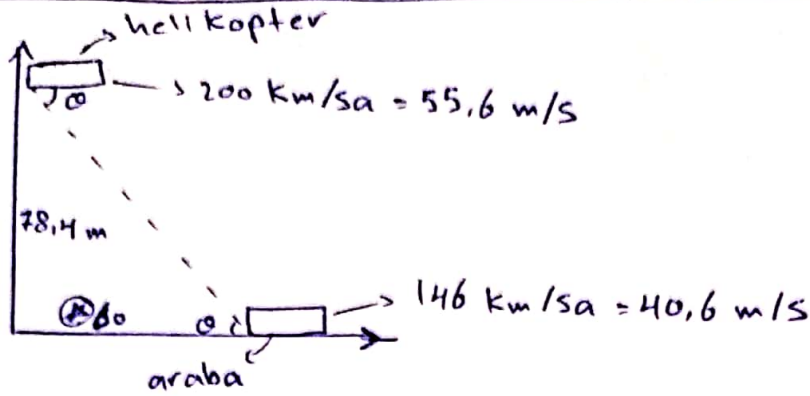 helikopter
200 km/sa = 55,6 m/s
78,4 m
146 km/sa = 40,6 m/s
araba